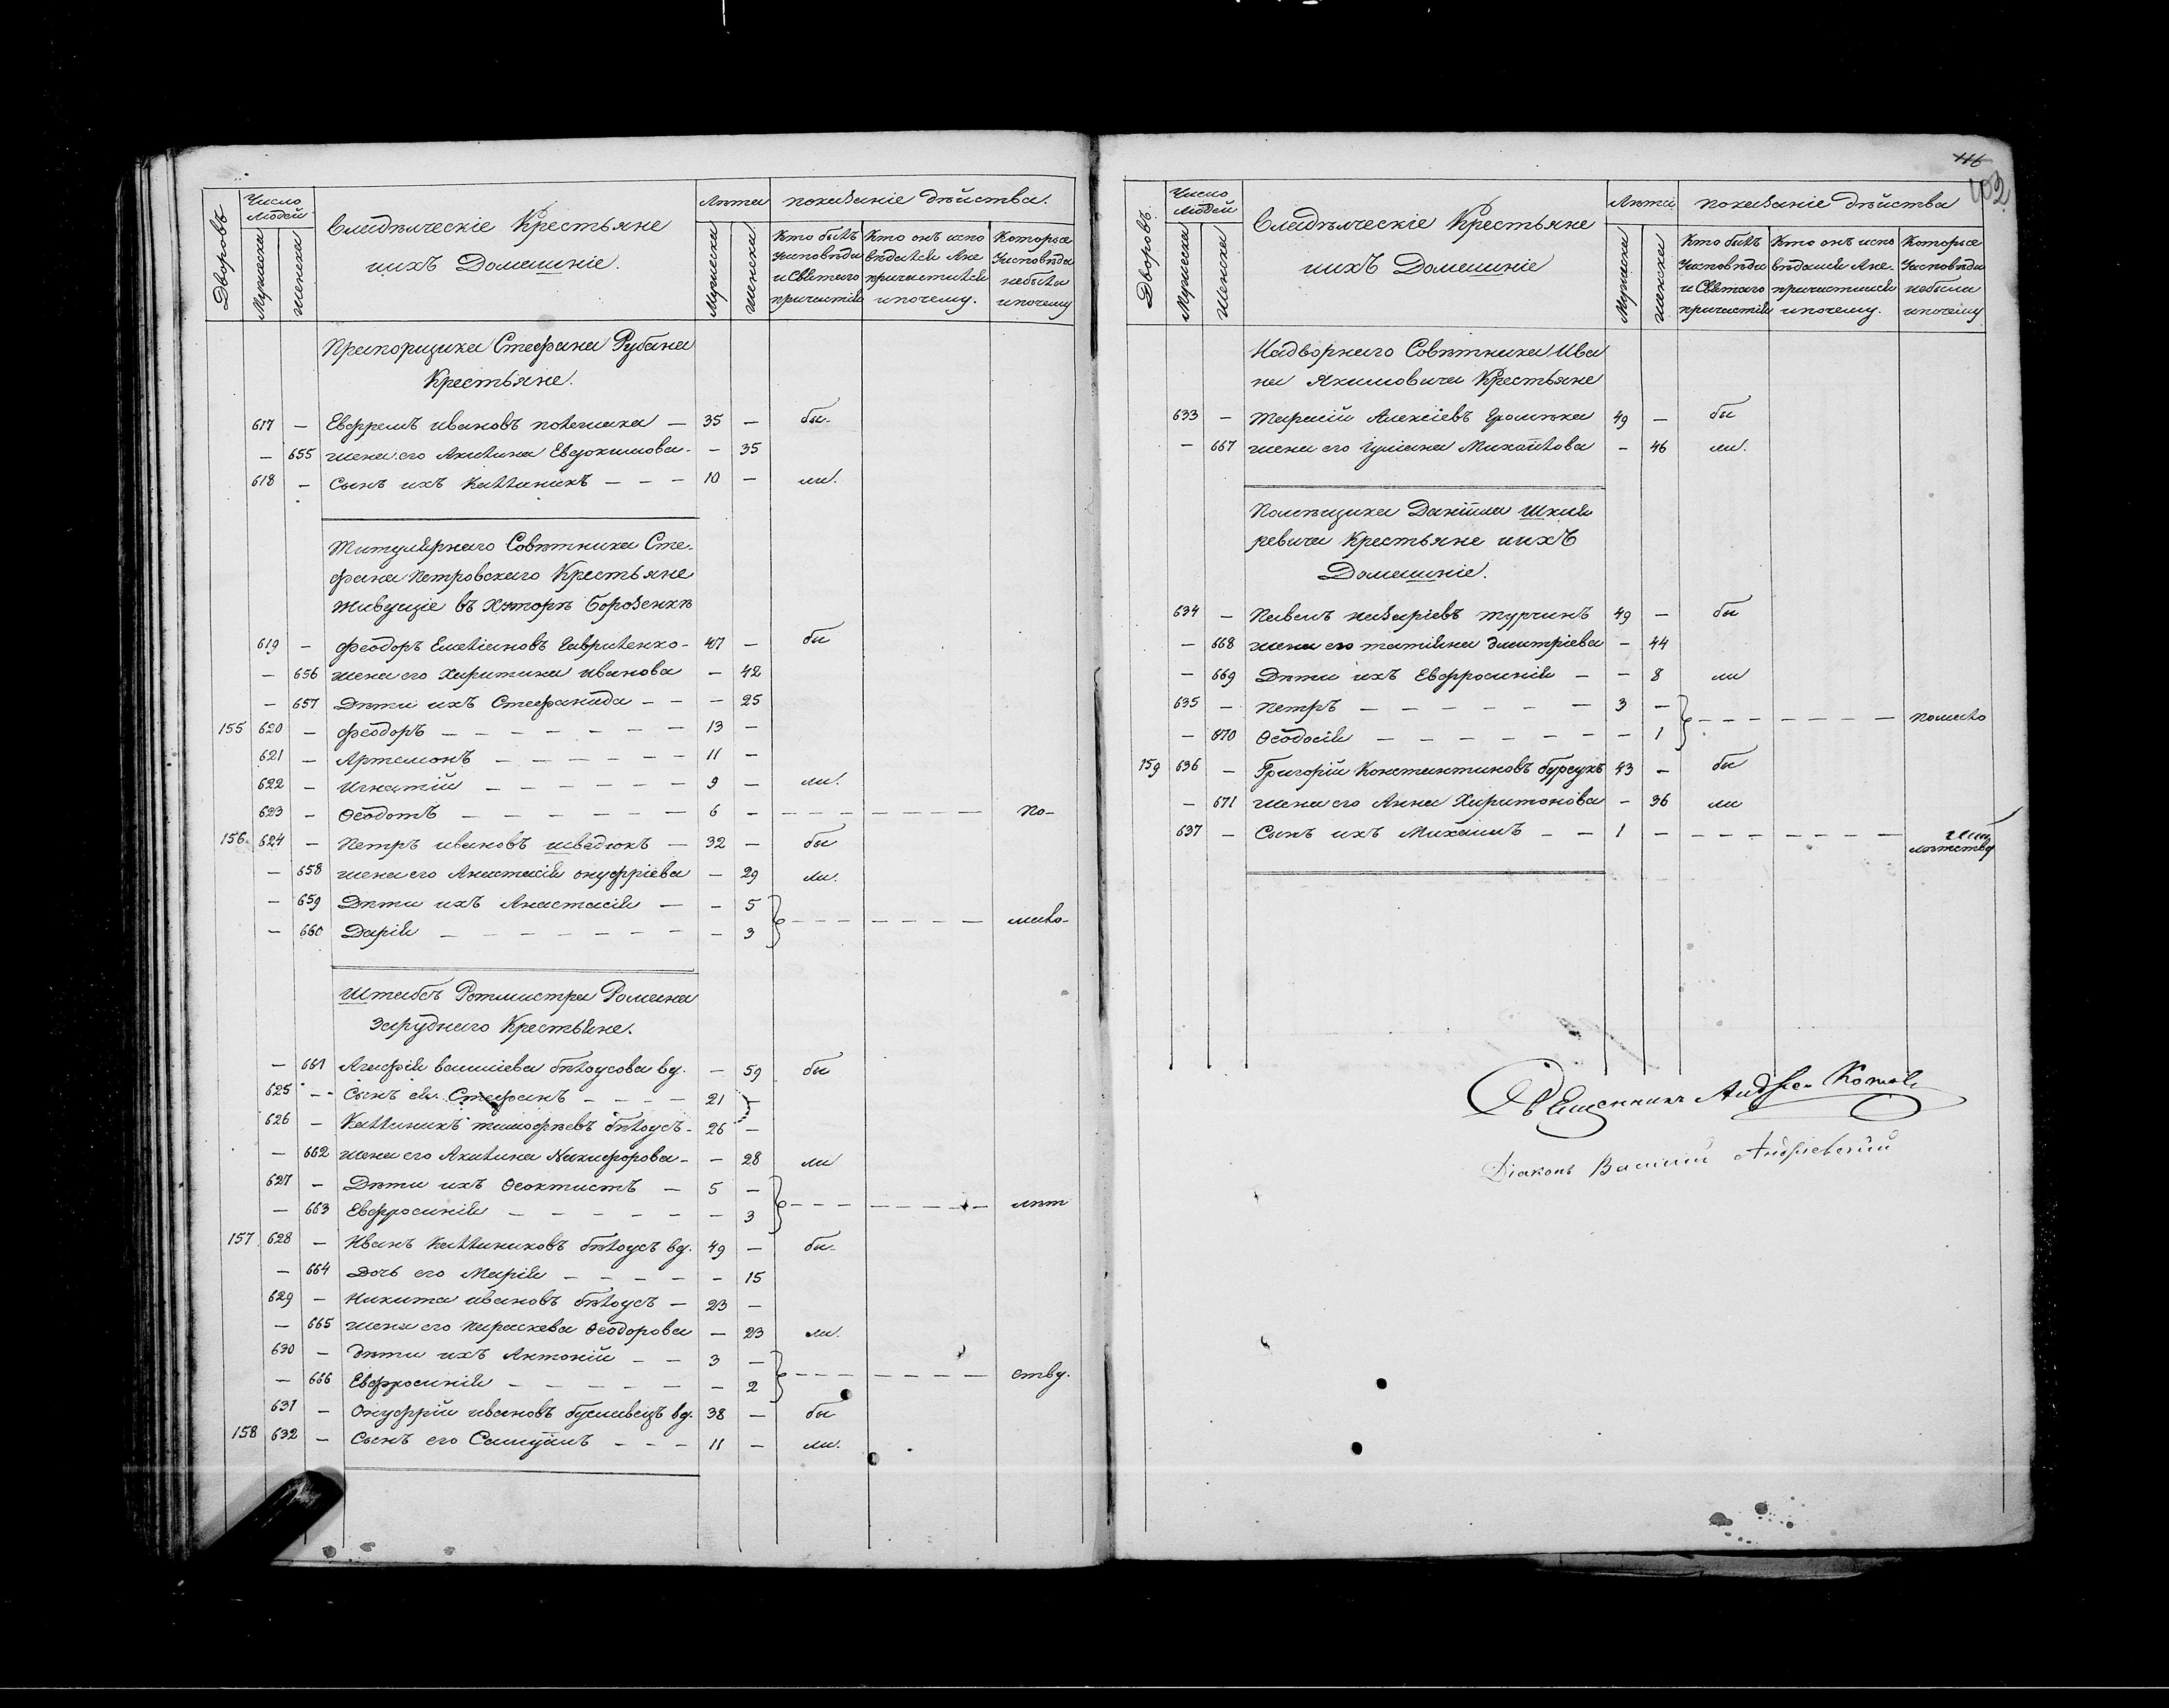 Дворовъ
Число людей
Мужеска
Женска
Владѣлческіе Крестьяне
иихъ Домашніе.
Лѣта
Мужеска
Женска
показаніе дѣйства.
Кто былъ уисповѣди и Святаго причастія
Кто онъ испо вѣдался Ане причастился ипочему.
Которые Уисповѣди небыли ипочему
Прапорщика Стефана Рубана
Крестьяне.
617 — Евфремъ ивановъ — 35 — бы-
— 655 жена его Акилина Евдокимова - — 35
618 — Сынъ ихъ Каллиникъ — — — 10 — ли.
Титулярнаго Совѣтника Сте-
фана Петровскаго Крестьяне
живущіе въ Хуторѣ Борозенкѣ
619 — Феодоръ Емеліановъ Гавриленко - 47 — бы
— 656 жена его Харитина иванова — 42
— 657 Дѣти ихъ Стефанида — — — 25
155 620 — Феодоръ — — — — — — — 13 —
621 — Артемонъ — — — — — — 11 —
622 — Игнатій — — — — — — 9 — ли.
623 — Ѳеодотъ — — — — — — 6 — — — — — — — — — по-
156. 624 — Петръ ивановъ шведюкъ — 32 — бы
— 658 жена его Анастасія онуфріева — 29 ли.
— 659 Дѣти ихъ Анастасія — — 5
— 660 Дарія — — — — — — — — 3 — — — — — — — мало-
Штабсъ Ротмистра Романа
Заруднаго Крестьяне.
— 661 Агафія василіева бѣлоусова вд. — 59 бы
625 — Сынъ ея Стефанъ — — — — 21 —
626 — Каллиникъ тимофѣевъ бѣлоусъ - 26 —
— 662 жена его Акилина Никифорова - — 28 ли
627 — Дѣти ихъ Ѳеоктистъ — 5 —
— 663 Евфросинія — — — — — — 3 — — — — — — — лѣт
157 628 — Иванъ Каллиниковъ бѣлоусъ вд. 49 — бы-
— 664 Дочь его Марія — — — — — 15
629 — Никита ивановъ бѣлоусъ — 23 —
— 665 жена его параскева Ѳеодорова — 23 ли.
630 — Дѣти ихъ Антоній — — 3 —
— 666 Евфросинія — — — — — — 2 — — — — — — — ству.
631 — Онуфрій ивановъ буславецъ вд. 38 — бы
158 632 — Сынъ его Самуилъ — — — 11 — ли.
116
102
Дворовъ
Число людей
Мужеска
Женска
Владѣлческіе Крестьяне
иихъ Домашніе
Лѣта
Мужеска
Женска
показаніе дѣйства
Кто былъ Уисповѣди и Святаго причастія
Кто онъ испо вѣдался Ане- причастился ипочему.
Которые Уисповѣди небыли ипочему
Надворнаго Совѣтника Ива
на Якимовича Крестьяне
633 — Тарасій Алексіевъ 49 — бы
— 667 жена его Іуліана Михайлова — 46 ли.
Помѣщика Даніила Шкля
ревича Крестьяне иихъ
Домашніе.
634 — Павелъ назаріевъ турчинъ 49 — бы
— 668 жена его татіяна димитріева — 44
— 669 Дѣти ихъ Евфросинія — — 8 ли
635 — Петръ — — — — — — 3 —
— 670 Ѳеодосія — — — — — — — 1 — — — — — — — помало
159 636 — Григорій Константиновъ бурсукъ 43 — бы
— 671 жена его Анна Харитонова — 36 ли
637 — Сынъ ихъ Михаилъ — — 1 — — — — — — — —
лѣтству
Священникъ Андрей
Діаконъ Василій Андріевскій